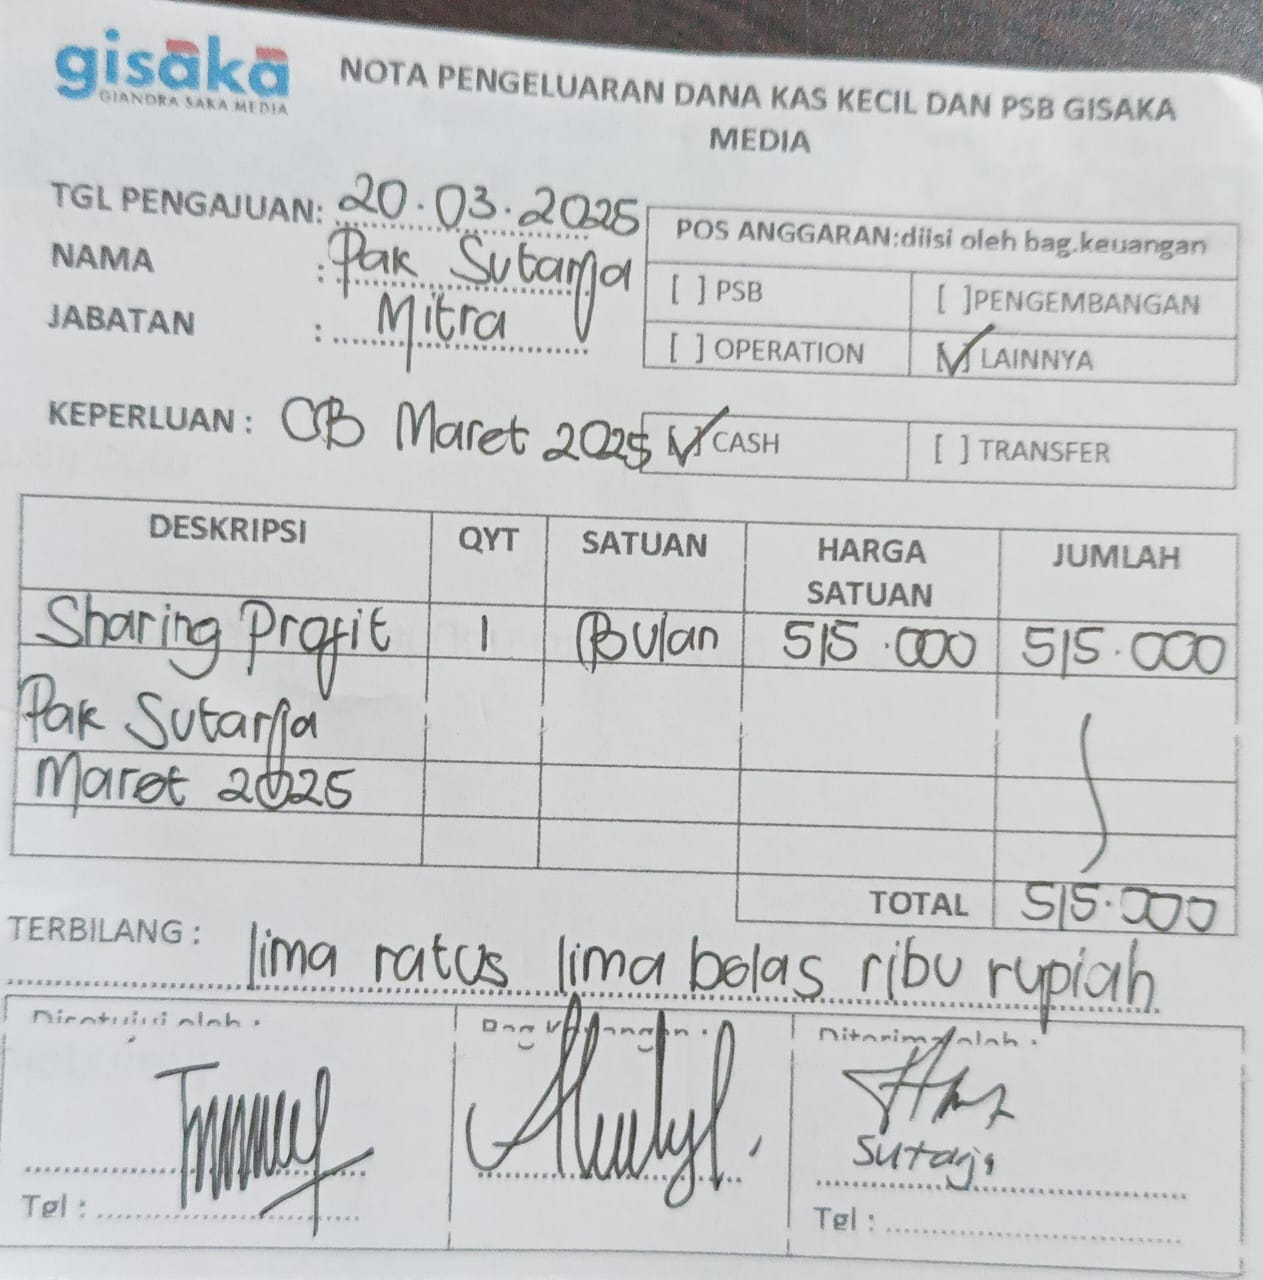 gisaka
GIANDRA SAKA MEDIA
NOTA PENGELUARAN DANA KAS KECIL DAN PSB GISAKA
MEDIA
TGL PENGAJUAN: 20.03.2025
NAMA : Pak Sutarja
JABATAN : Mitra
POS ANGGARAN:diisi oleh bag.keuangan
[ ] PSB [ ]PENGEMBANGAN
[ ] OPERATION [✓] LAINNYA
KEPERLUAN : OB Maret 2025 [✓] CASH [ ] TRANSFER
DESKRIPSI QYT SATUAN HARGA SATUAN JUMLAH
Sharing Profit 1 Bulan 515.000 515.000
Pak Sutarja
Maret 2025
TOTAL 515.000
TERBILANG : lima ratus lima belas ribu rupiah
Disetujui oleh : Bag Keuangan : Diterima oleh :
Sutarja
Tgl : Tgl :